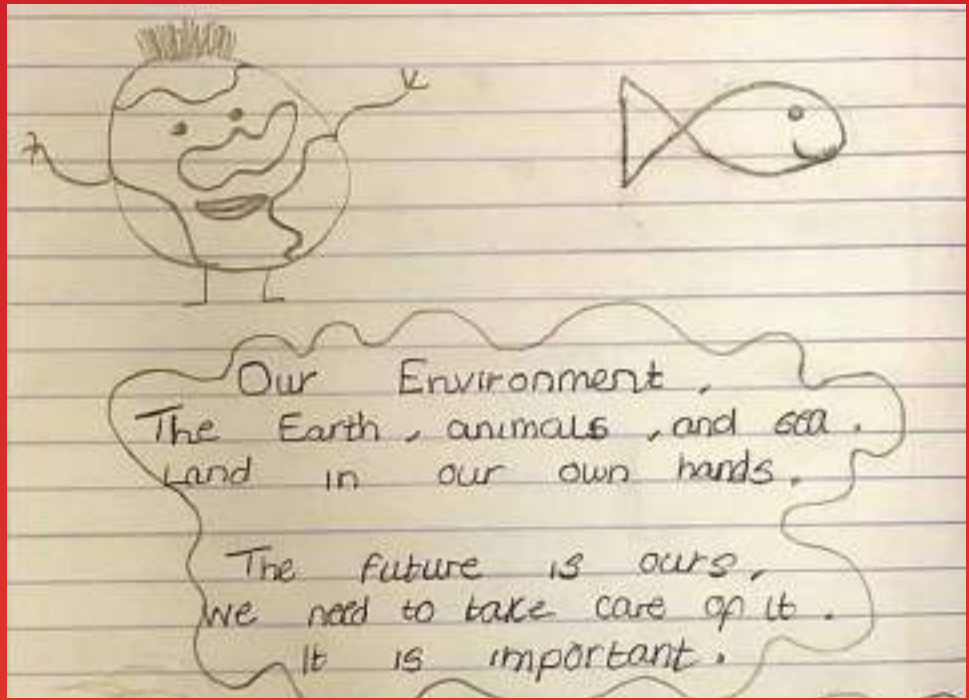 Our Environment,
The Earth, animals, and sea.
Land in our own hands.
The future is ours,
We need to take care of it.
It is important.